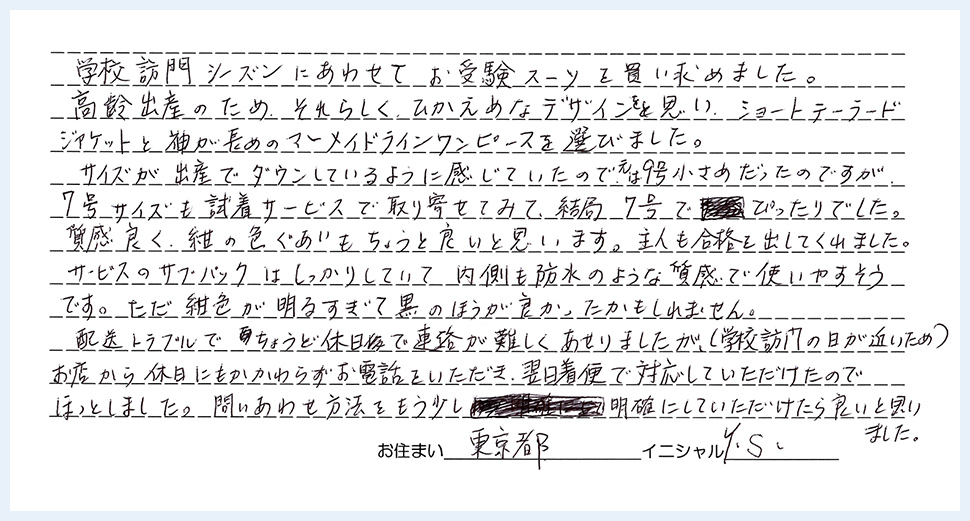 学校訪門シーズンにあわせてお受験スーツを買い求めました。
高齢出産のため、それらしく、ひかえめなデザインをと思い、ショートテーラード
ジャケットと袖が長めのマーメイドラインワンピースを選びました。
サイズが出産でダウンしているように感じていたので元は9号小さめだったのですが、
7号サイズも試着サービスで取り寄せてみて、結局7号でぴったりでした。
質感良く、紺の色ぐあいもちょうど良いと思います。主人も合格を出してくれました。
サービスのサブバックはしっかりしていて内側も防水のような質感で使いやすそう
です。ただ紺色が明るすぎて黒のほうが良かったかもしれません。
配送トラブルでちょうど休日後で連絡が難しくあせりましたが、(学校訪門の日が近いため)
お店から休日にもかかわらずお電話をいただき、翌日着便で対応していただけたので
ほっとしました。問いあわせ方法をもう少し明確にしていただけたら良いと思い
ました。
お住まい 東京都 イニシャル Y.S.